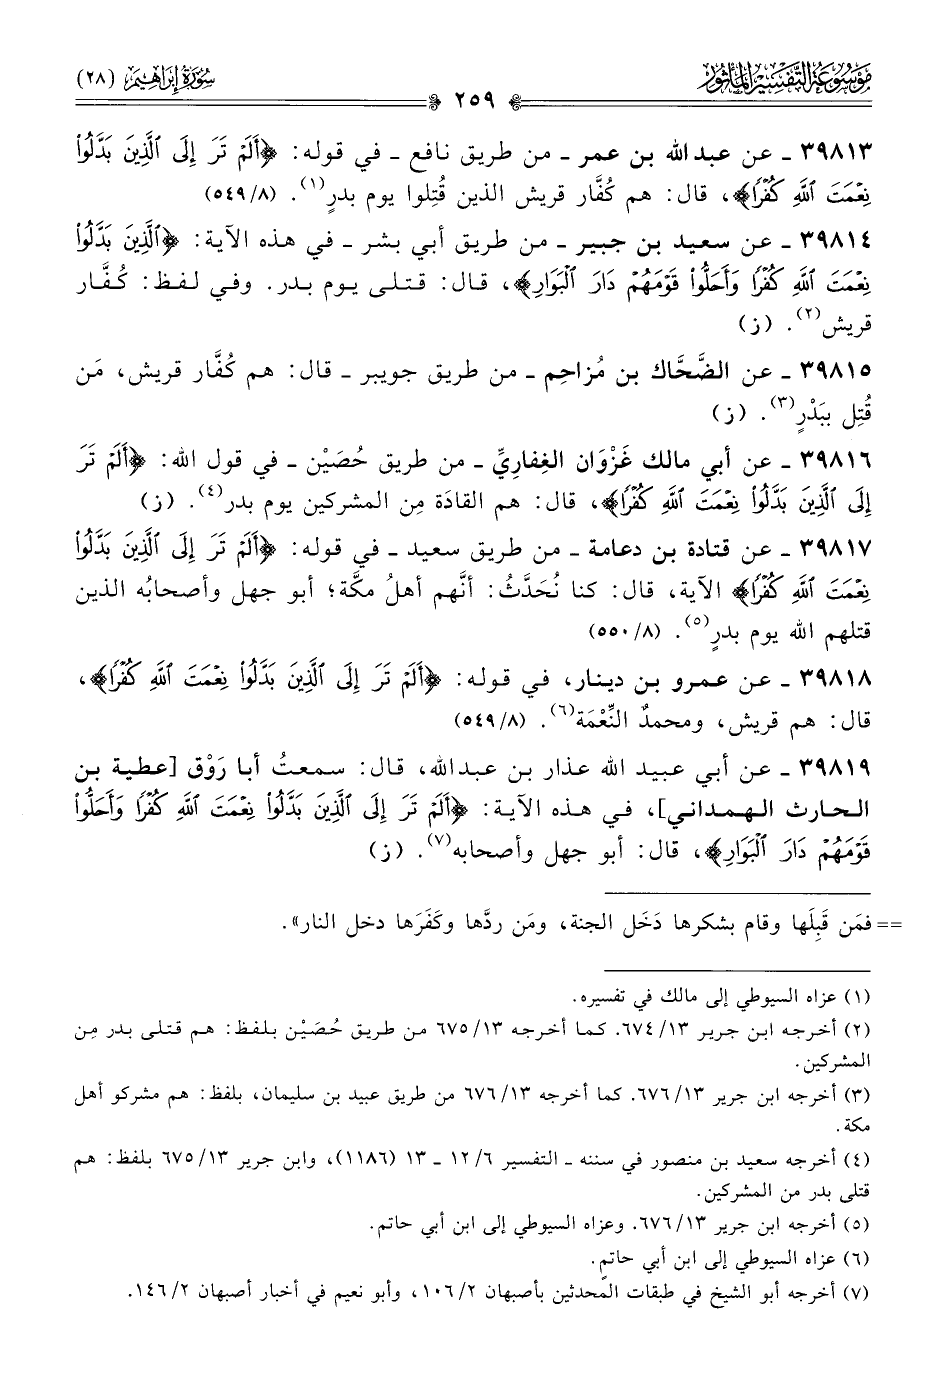 موسوعة التفسير المأثور
سورة إبراهيم (٢٨)
٢٥٩
٣٩٨١٣ ـ عن عبدالله بن عمر ـ من طريق نافع ـ في قوله: ﴿أَلَمْ تَرَ إِلَى ٱلَّذِينَ بَدَّلُوا۟
نِعْمَتَ ٱللَّهِ كُفْرًا﴾، قال: هم كُفَّار قريش الذين قُتِلوا يوم بدرٍ(١). (٥٤٩/٨)
٣٩٨١٤ ـ عن سعيد بن جبير ـ من طريق أبي بشر ـ في هذه الآية: ﴿ٱلَّذِينَ بَدَّلُوا۟
نِعْمَتَ ٱللَّهِ كُفْرًا وَأَحَلُّوا۟ قَوْمَهُمْ دَارَ ٱلْبَوَارِ﴾، قال: قتلى يوم بدر. وفي لفظ: كُفَّار
قريش(٢). (ز)
٣٩٨١٥ ـ عن الضَّحَّاك بن مُزاحِم ـ من طريق جويبر ـ قال: هم كُفَّار قريش، مَن
قُتِل ببَدْرٍ(٣). (ز)
٣٩٨١٦ ـ عن أبي مالك غَزْوَان الغِفاريِّ ـ من طريق حُصَيْن ـ في قول الله: ﴿أَلَمْ تَرَ
إِلَى ٱلَّذِينَ بَدَّلُوا۟ نِعْمَتَ ٱللَّهِ كُفْرًا﴾، قال: هم القادَة مِن المشركين يوم بدر(٤). (ز)
٣٩٨١٧ ـ عن قتادة بن دعامة ـ من طريق سعيد ـ في قوله: ﴿أَلَمْ تَرَ إِلَى ٱلَّذِينَ بَدَّلُوا۟
نِعْمَتَ ٱللَّهِ كُفْرًا﴾ الآية، قال: كنا نُحَدَّثُ: أنَّهم أهلُ مكَّة؛ أبو جهل وأصحابُه الذين
قتلهم الله يوم بدرٍ(٥). (٥٥٠/٨)
٣٩٨١٨ ـ عن عمرو بن دينار، في قوله: ﴿أَلَمْ تَرَ إِلَى ٱلَّذِينَ بَدَّلُوا۟ نِعْمَتَ ٱللَّهِ كُفْرًا﴾،
قال: هم قريش، ومحمدٌ النِّعْمَة(٦). (٥٤٩/٨)
٣٩٨١٩ ـ عن أبي عبيد الله عذار بن عبدالله، قال: سمعتُ أبا رَوْق [عطية بن
الحارث الهمداني]، في هذه الآية: ﴿أَلَمْ تَرَ إِلَى ٱلَّذِينَ بَدَّلُوا۟ نِعْمَتَ ٱللَّهِ كُفْرًا وَأَحَلُّوا۟
قَوْمَهُمْ دَارَ ٱلْبَوَارِ﴾، قال: أبو جهل وأصحابه(٧). (ز)
== فمَن قَبِلَها وقام بشكرها دَخَل الجنة، ومَن ردَّها وكَفَرَها دخل النار».
(١) عزاه السيوطي إلى مالك في تفسيره.
(٢) أخرجه ابن جرير ٦٧٤/١٣. كما أخرجه ٦٧٥/١٣ من طريق حُصَيْن بلفظ: هم قتلى بدر مِن
المشركين.
(٣) أخرجه ابن جرير ٦٧٦/١٣. كما أخرجه ٦٧٦/١٣ من طريق عبيد بن سليمان، بلفظ: هم مشركو أهل
مكة.
(٤) أخرجه سعيد بن منصور في سننه ـ التفسير ١٢/٦ ـ ١٣ (١١٨٦)، وابن جرير ٦٧٥/١٣ بلفظ: هم
قتلى بدر من المشركين.
(٥) أخرجه ابن جرير ٦٧٦/١٣. وعزاه السيوطي إلى ابن أبي حاتم.
(٦) عزاه السيوطي إلى ابن أبي حاتم.
(٧) أخرجه أبو الشيخ في طبقات المحدثين بأصبهان ١٠٦/٢، وأبو نعيم في أخبار أصبهان ١٤٦/٢.